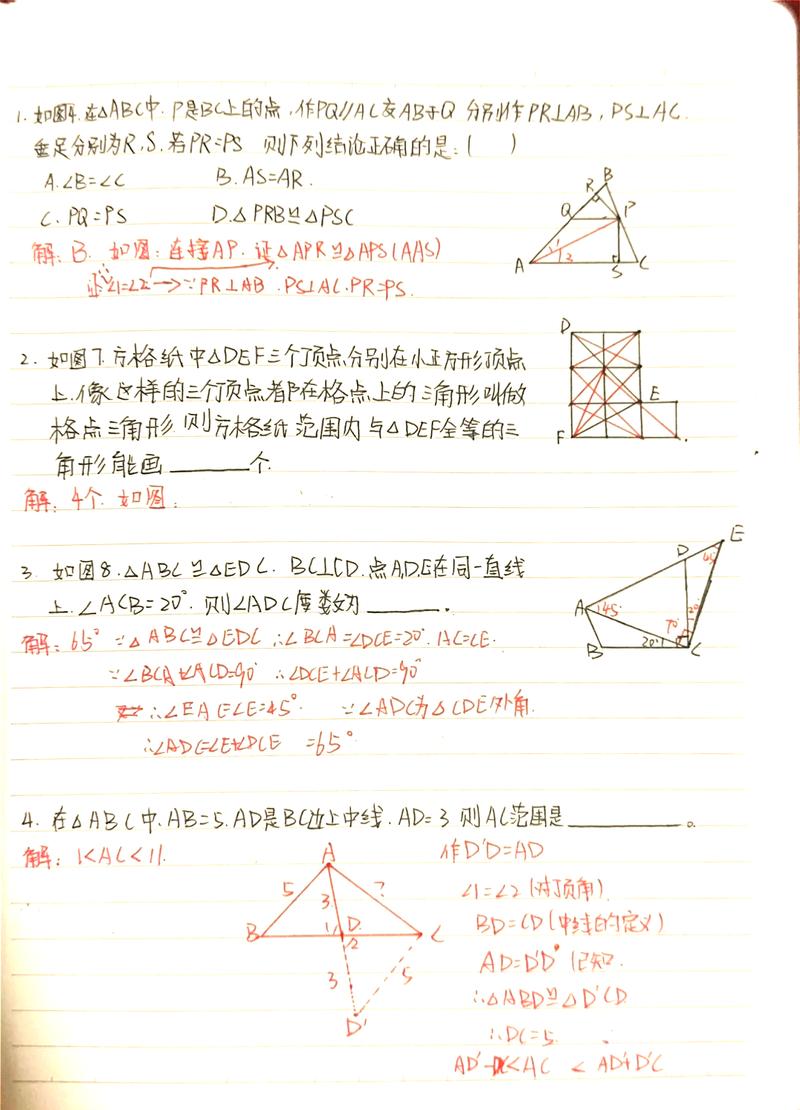 1. 如图4.在△ABC中.P是BC上的点,作PQ∥AC交AB于Q 分别作PR⊥AB,PS⊥AC.
垂足分别为R,S.若PR=PS 则下列结论正确的是:( )
A.∠B=∠C B.AS=AR.
C. PQ=PS D.△PRB≌△PSC
解:B. 如图:连接AP.证△APR≌△APS(AAS)
证∠1=∠2→∵PR⊥AB.PS⊥AC.PR=PS.
B
R
Q
P
1
2
A
S
C
2. 如图7.方格纸中△DEF三个顶点分别在小正方形顶点
上.像这样的三个顶点都在格点上的三角形叫做
格点三角形 则方格纸范围内与△DEF全等的三
角形能画 个.
解:4个.如图:
D
E
F
3. 如图8.△ABC≌△EDC. BC⊥CD.点A,D,E在同一直线
上.∠ACB=20°.则∠ADC度数为 .
解:65° ∵△ABC≌△EDC ∴∠BCA=∠DCE=20°.AC=CE.
∵∠BCA+∠ACD=90° ∴∠DCE+∠ACD=90°
∴∠EAC=∠E=45°. ∵∠ADC为△CDE外角.
∴∠ADC=∠E+∠DCE =65°
E
D
45°
A
45°
70°
20°
20°
B
C
4. 在△ABC中.AB=5.AD是BC边上中线.AD=3 则AC范围是 。
解:1<AC<11.
A
5
3
?
B
1
D
2
C
3
5
D'
作D'D=AD
∠1=∠2(对顶角)
BD=CD(中线的定义)
AD=D'D 已知.
∴△ABD≌△D'CD
∴D'C=5.
AD'-D'C<AC < AD'+D'C